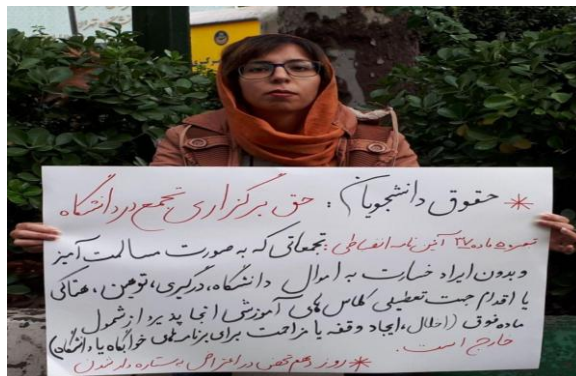 * حقوق دانشجویان: حق برگزاری تجمع در دانشگاه
تبصره ۵ ماده ۲۷ آئین نامه انضباطی: تجمعاتی که به صورت مسالمت آمیز
و بدون ایراد خسارت به اموال دانشگاه، درگیری، توهین، هتاکی
یا اقدام جهت تعطیلی کلاس های آموزشی انجام پذیرد از شمول
ماده فوق (اخلال، ایجاد وقفه یا مزاحمت برای برنامه های خوابگاه یا دانشگاه)
خارج است.
* روز دهم تحصن در اعتراض به ستاره دار شدن